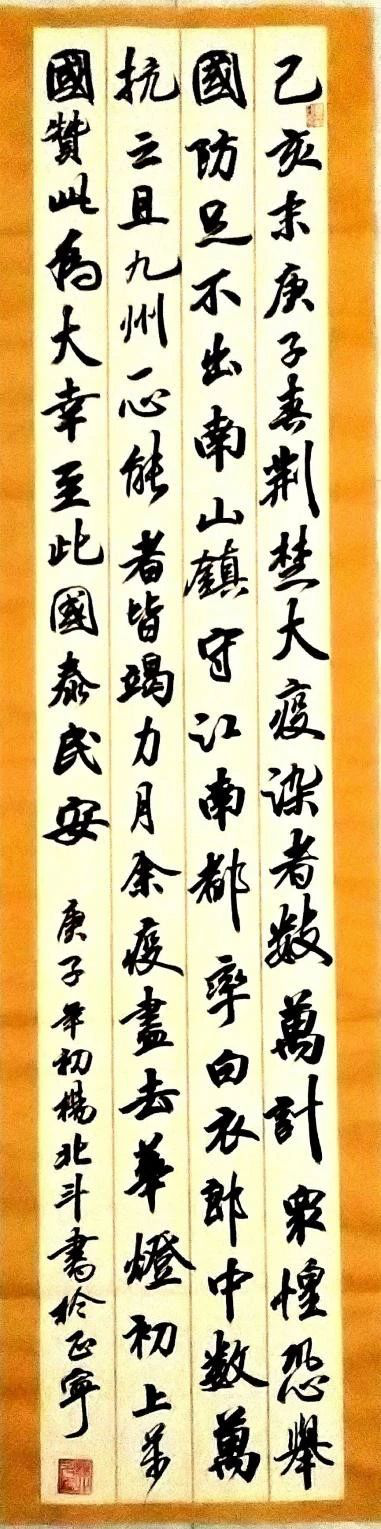 己亥末庚子春荆楚大疫染者数萬計衆惶恐舉
國防足不出南山鎮守江南都率白衣郎中数萬
抗之且九州一心能者皆竭力月余疫盡去華燈初上萬
國贊此為大幸至此國泰民安
庚子年初楊北斗書於正寧